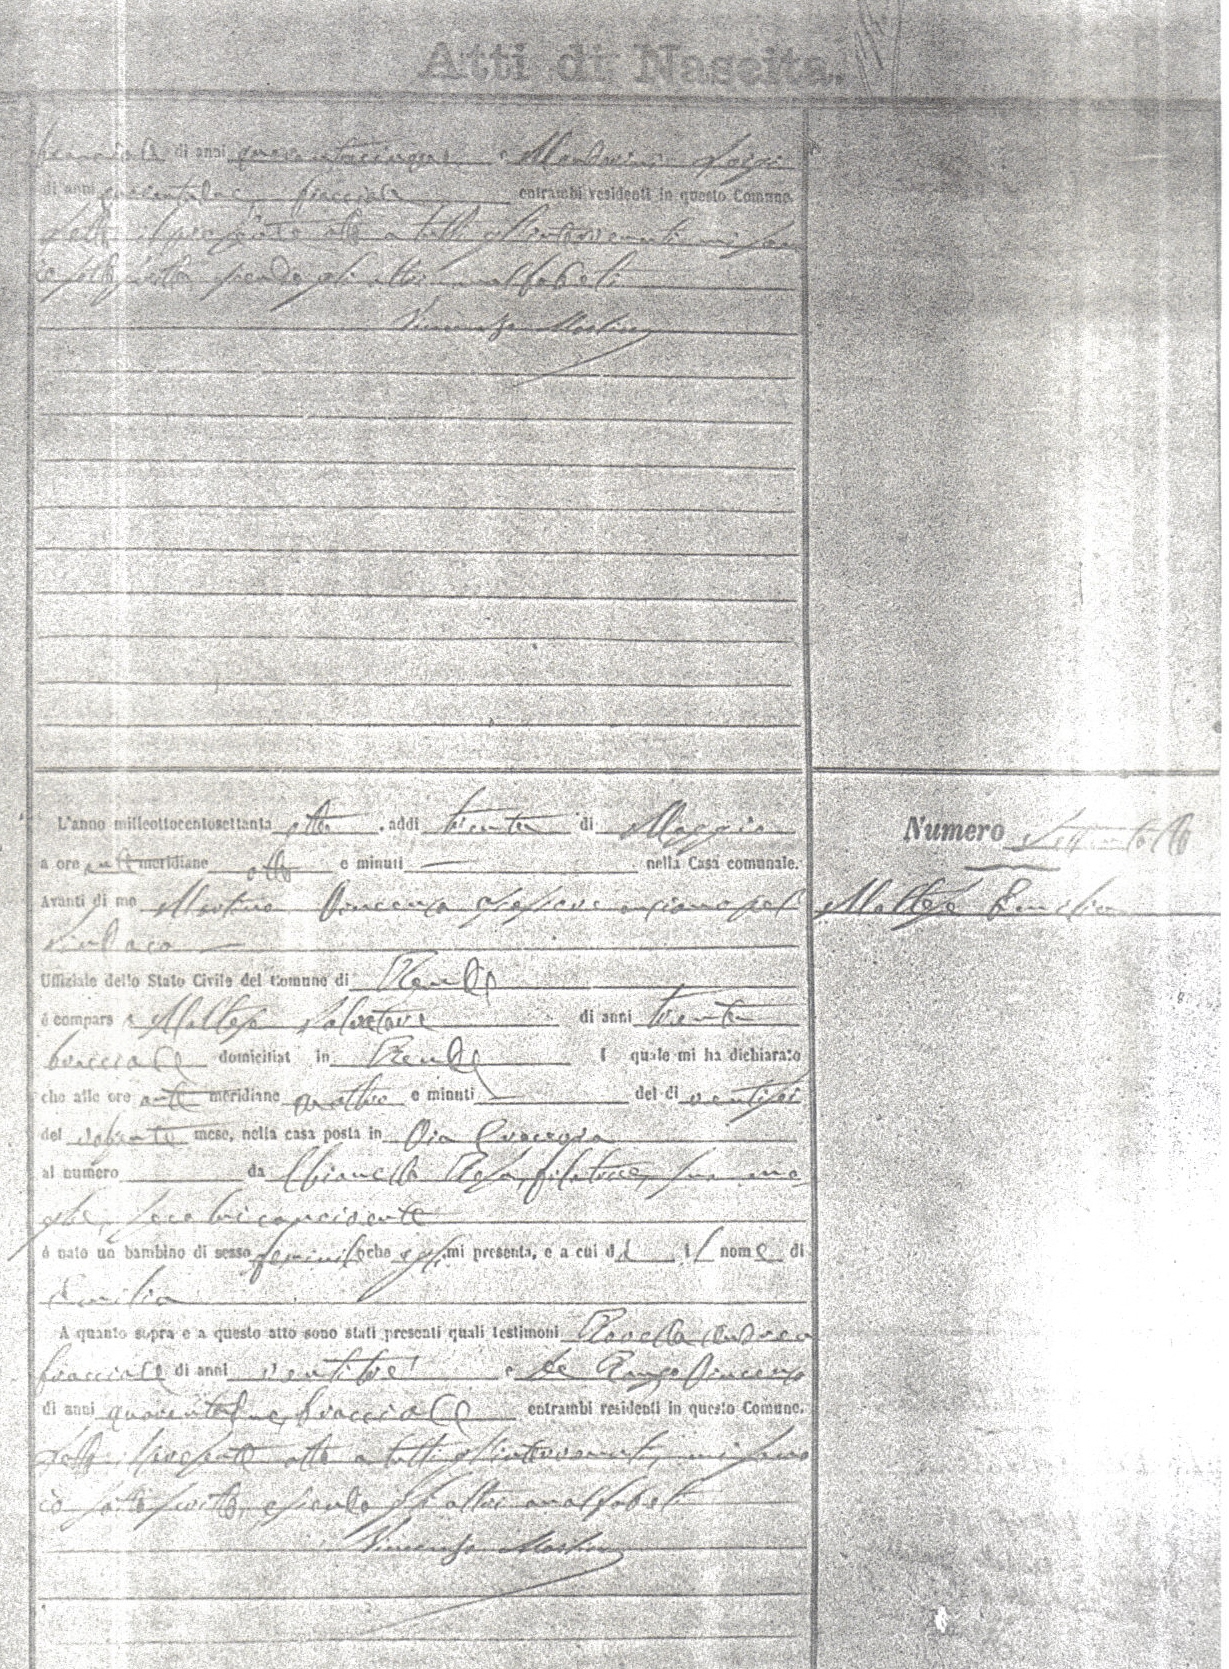 Atti di Nascita.
bracciale di anni quarantacinque e Luigi
di anni bracciale entrambi residenti in questo Comune.
Letto il presente atto a tutti gl'intervenuti, mi sono
io sottoscritto, essendo gli altri analfabeti
Vincenzo Martino
L'anno milleottocentosettanta otto, addì trenta di Maggio
a ore ante meridiane otto e minuti — nella Casa comunale.
Avanti di me Martino Vincenzo assessore anziano pel
Sindaco
Uffiziale dello Stato Civile del Comune di Rende
è compars o Maltese Salvatore di anni trenta
bracciale domiciliat in Rende l quale mi ha dichiarato
che alle ore ante meridiane quattro e minuti — del dì ventisei
del volgente mese, nella casa posta in Via
al numero da Chiancella Rosa, filatrice, sua mo
glie, seco lui convivente
è nato un bambino di sesso feminile che egli mi presenta, e a cui dà il nome di
Emilia
A quanto sopra e a questo atto sono stati presenti quali testimoni Rovella Andrea
bracciale di anni ventitre e De Rango Vincenzo
di anni quarantadue, bracciale entrambi residenti in questo Comune.
Letto il presente atto a tutti gl'intervenuti, mi sono
io sottoscritto, essendo gli altri analfabeti
Vincenzo Martino
Numero Settantotto
Maltese Emilia